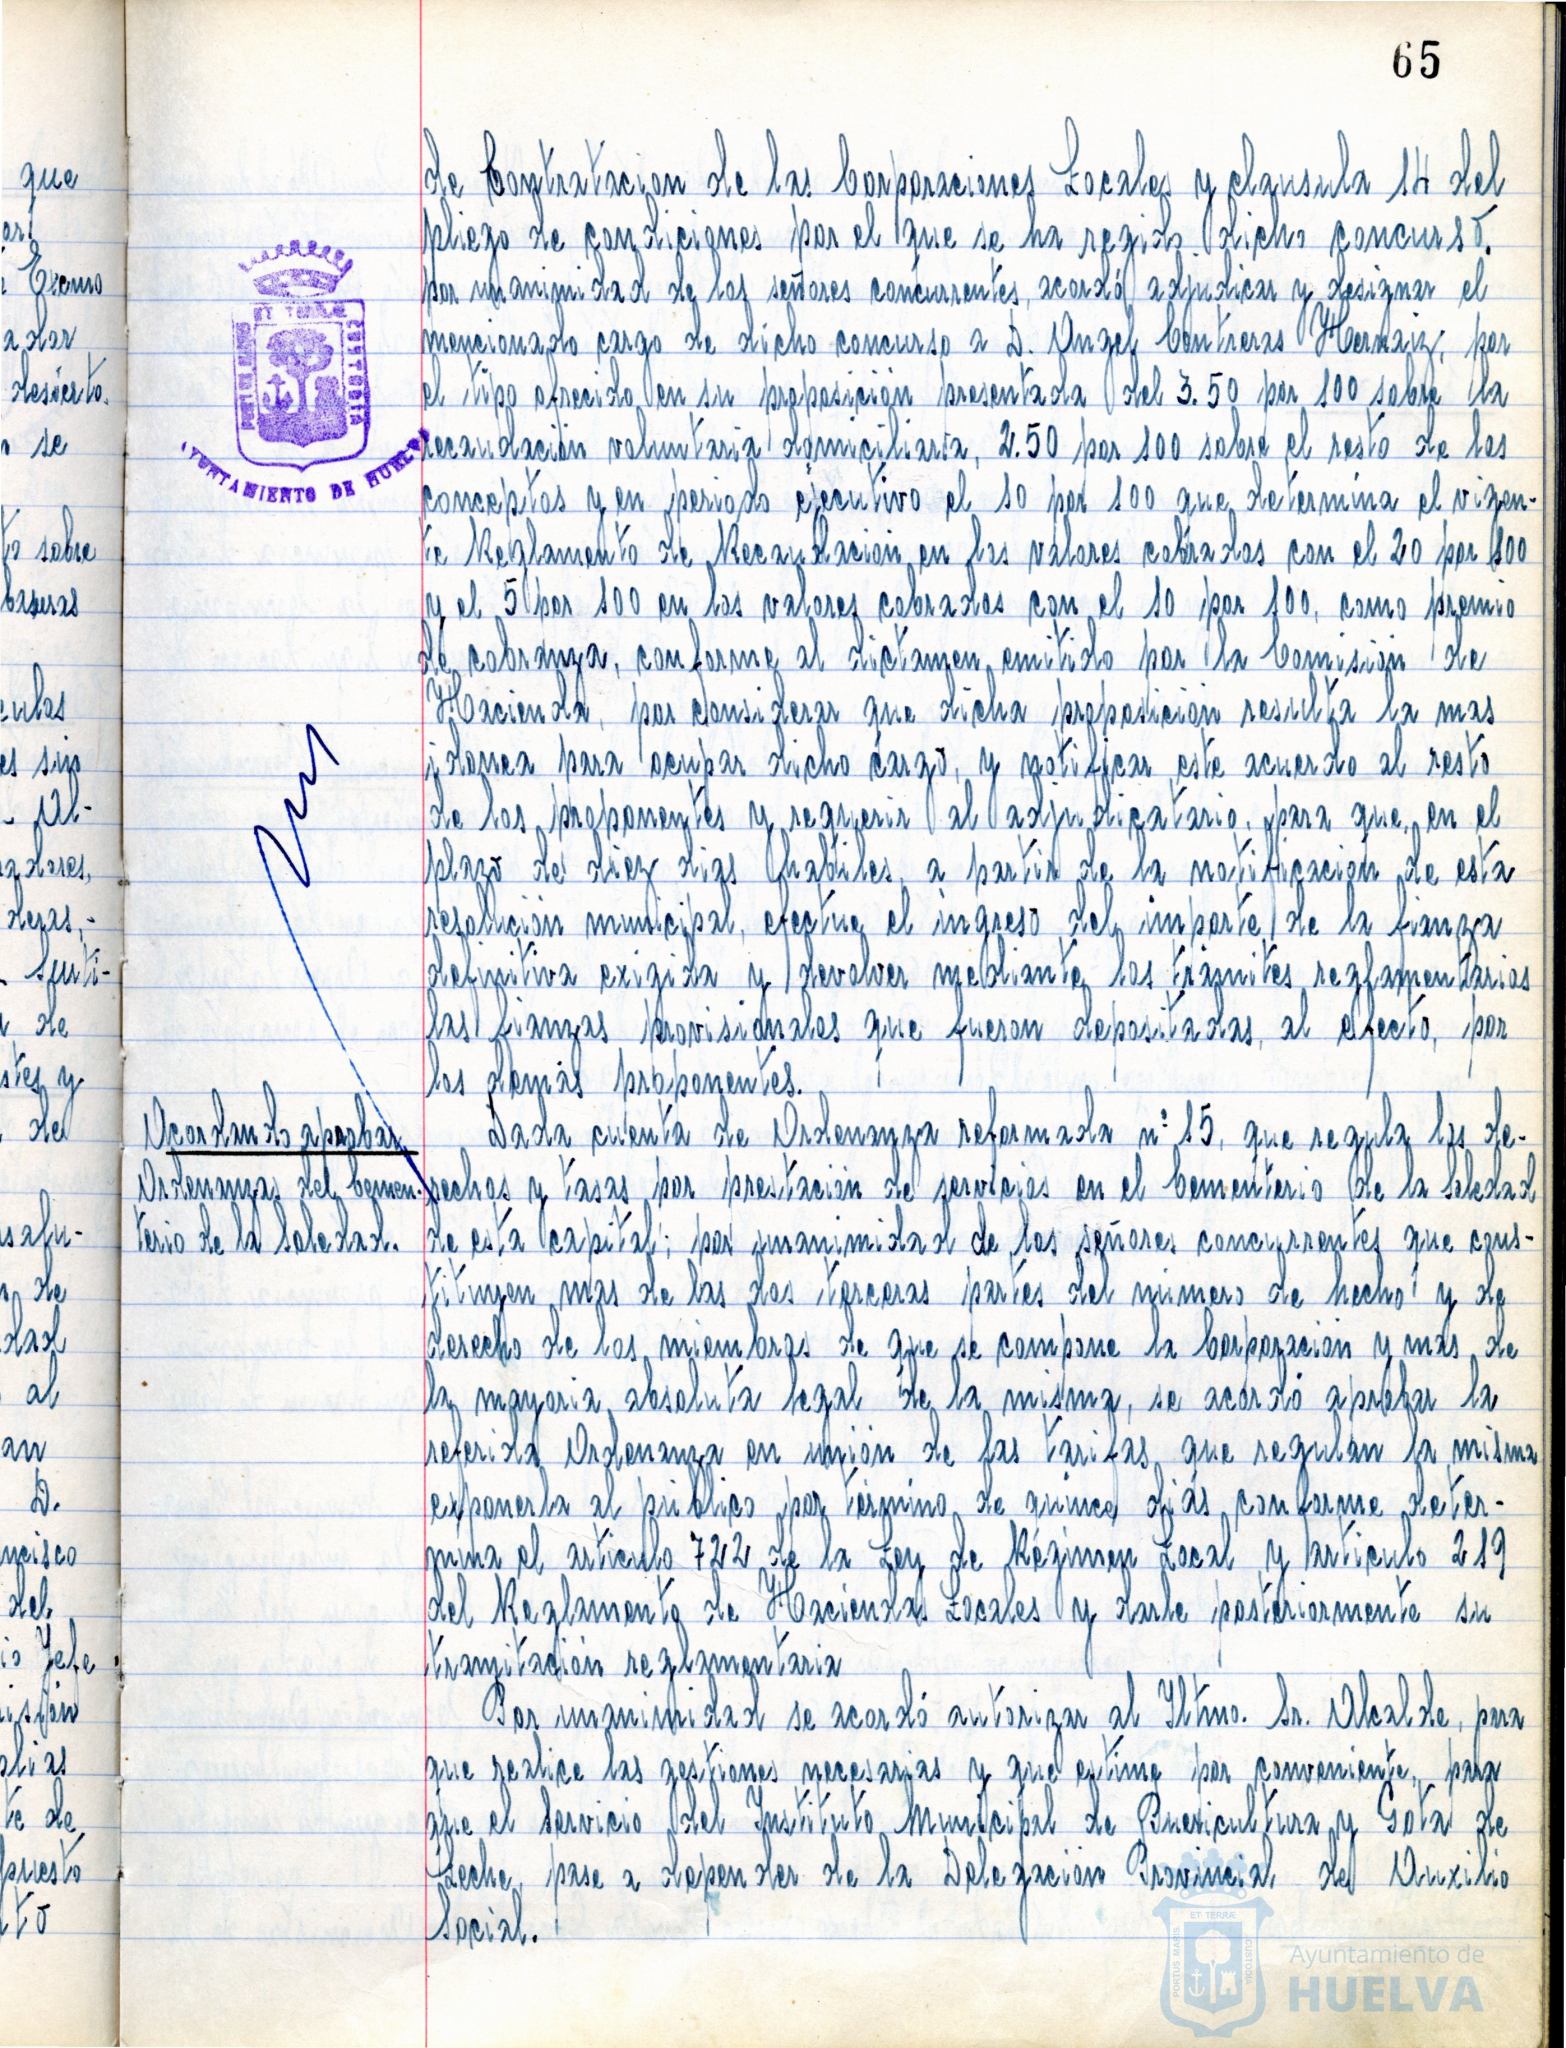 65
de Contratacion de las Corporaciones Locales y clausula 14 del
pliego de condiciones por el que se ha regido dicho concurso.
por unanimidad de los señores concurrentes, acordó adjudicar y designar el
mencionado cargo de dicho concurso a D. Angel Contreras Hernaiz, por
el tipo ofrecido en su proposición presentada del 3.50 por 100 sobre la
recaudación voluntaria domiciliaria, 2.50 por 100 sobre el resto de los
conceptos y en periodo ejecutivo el 10 por 100 que determina el vigen-
te Reglamento de Recaudacion en los valores cobrados con el 20 por 100
y el 5 por 100 en los valores cobrados con el 10 por 100, como premio
de cobranza, conforme al dictamen emitido por la Comisión de
Hacienda, por considerar que dicha proposición resulta la mas
idonea para ocupar dicho cargo, y notificar este acuerdo al resto
de los proponentes y requerir al adjudicatario, para que, en el
plazo de diez dias habiles, a partir de la notificación de esta
resolución municipal, efectue el ingreso del importe de la fianza
definitiva exigida y devolver mediante los tramites reglamentarios
las fianzas provisionales que fueron depositadas, al efecto, por
los demás proponentes.
Acordando aprobar
Ordenanzas del Cemen-
terio de la Soledad.
Dada cuenta de Ordenanza reformada nº 15, que regula los de-
rechos y tasas por prestación de servicios en el Cementerio de la Soledad
de esta capital; por unanimidad de los señores concurrentes que cons-
tituyen mas de las dos terceras partes del número de hecho y de
derecho de los miembros de que se compone la Corporación y mas de
la mayoria absoluta legal de la misma, se acordó aprobar la
referida Ordenanza en unión de las tarifas que regulan la misma
exponerla al público por término de quince dias conforme deter-
mina el articulo 722 de la Ley de Régimen Local y articulo 219
del Reglamento de Haciendas Locales y darle posteriormente su
tramitación reglamentaria
Por unanimidad se acordó autorizar al Iltmo. Sr. Alcalde, para
que realice las gestiones necesarias y que estime por conveniente, para
que el Servicio del Instituto Municipal de Puericultura y Gota de
Leche, pase a depender de la Delegación Provincial de Auxilio
Social.
PORTUS MARIS
ET TERRAE
CUSTODIA
AYUNTAMIENTO DE HUELVA
que
Excmo
desierto.
se
sobre
basuras
sin
Al-
de
y
de
de
al
D.
del
Jefe
de
PORTUS MARIS
ET TERRAE
CUSTODIA
Ayuntamiento de
HUELVA